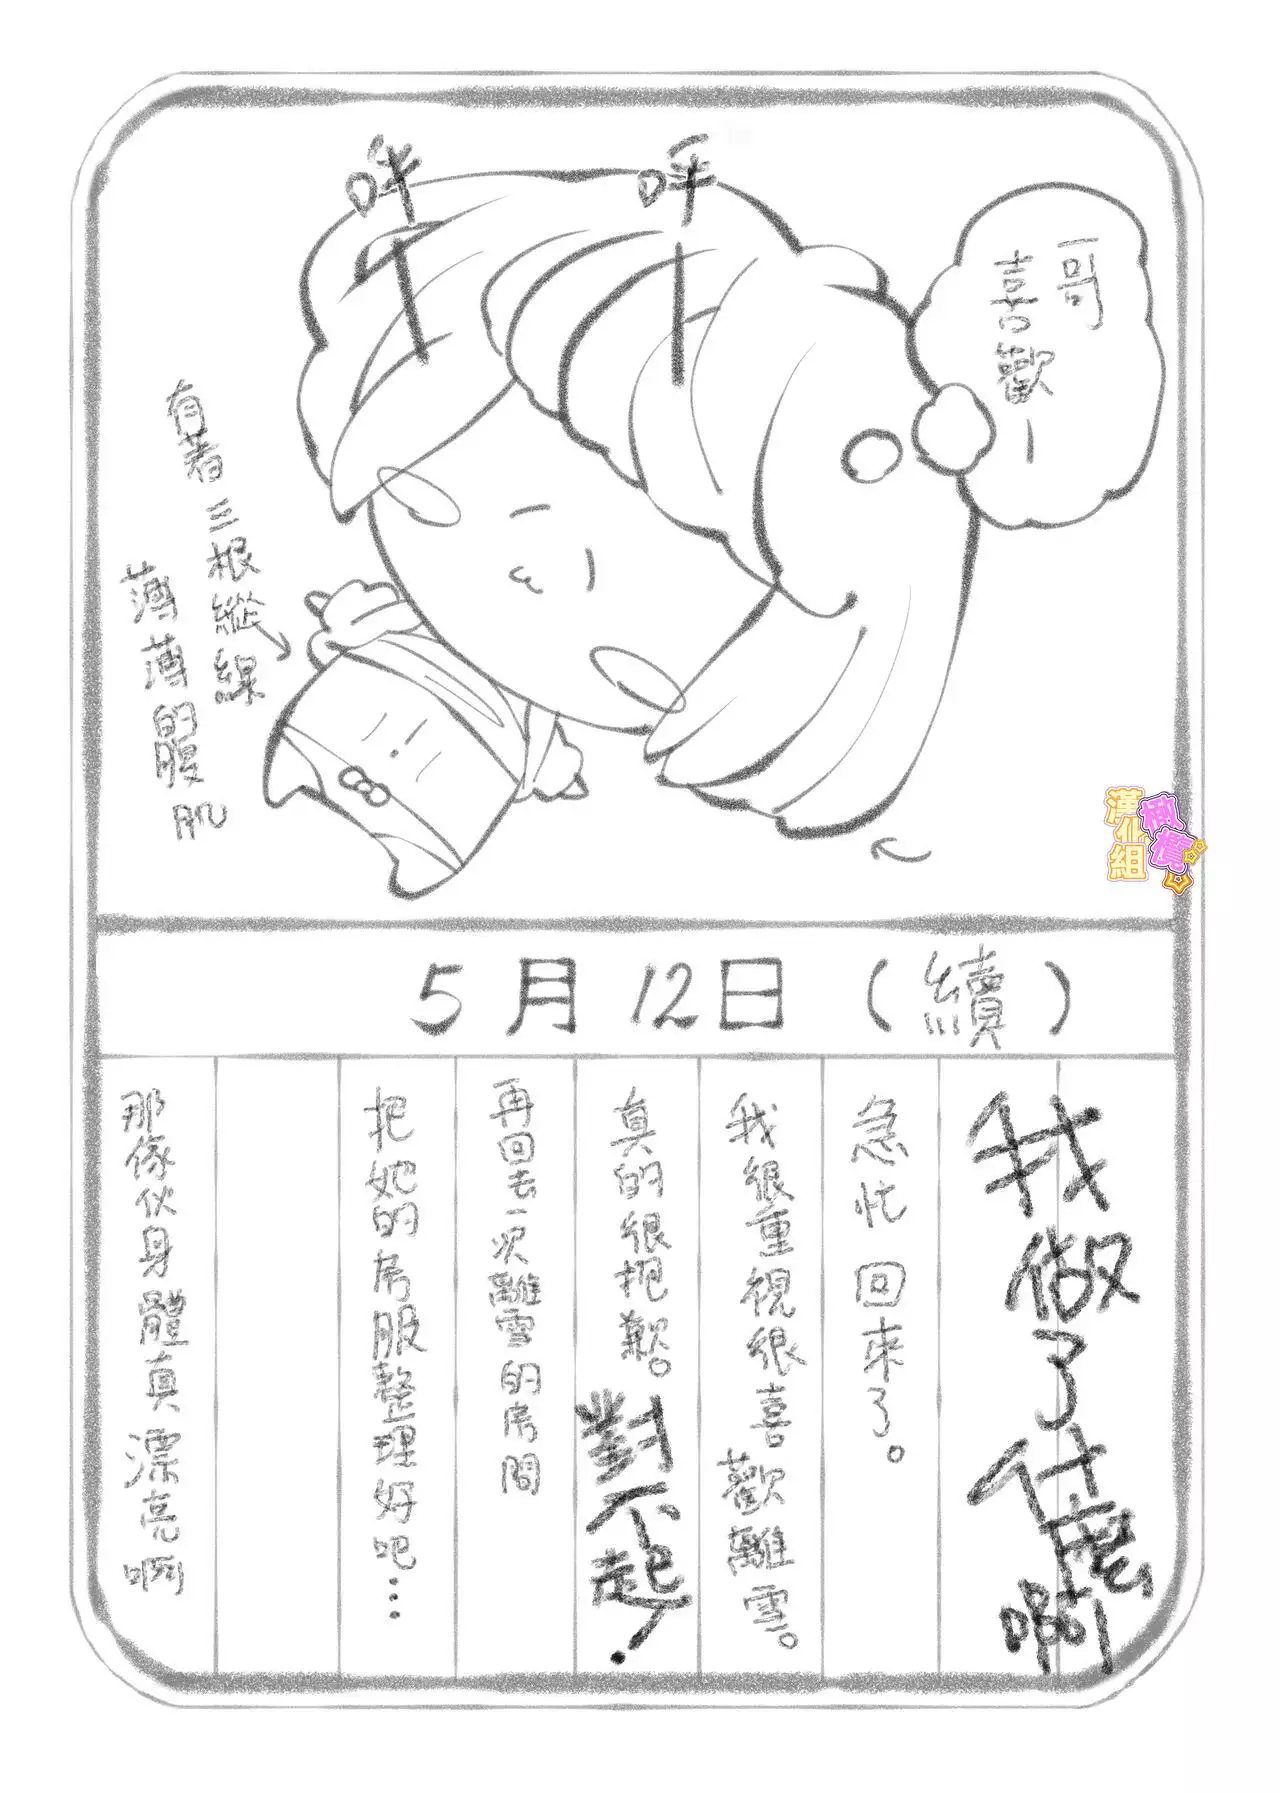 呼ー
呼ー
哥
喜歡ー
有著三根縱線
薄薄的腹肌
橄欖
漢化組
5月12日(續)
我做了什麼啊
急忙回來了。
我很重視很喜歡離雪。
真的很抱歉。對不起!
再回去一次離雪的房間
把她的房服整理好吧…
那傢伙身體真漂亮啊